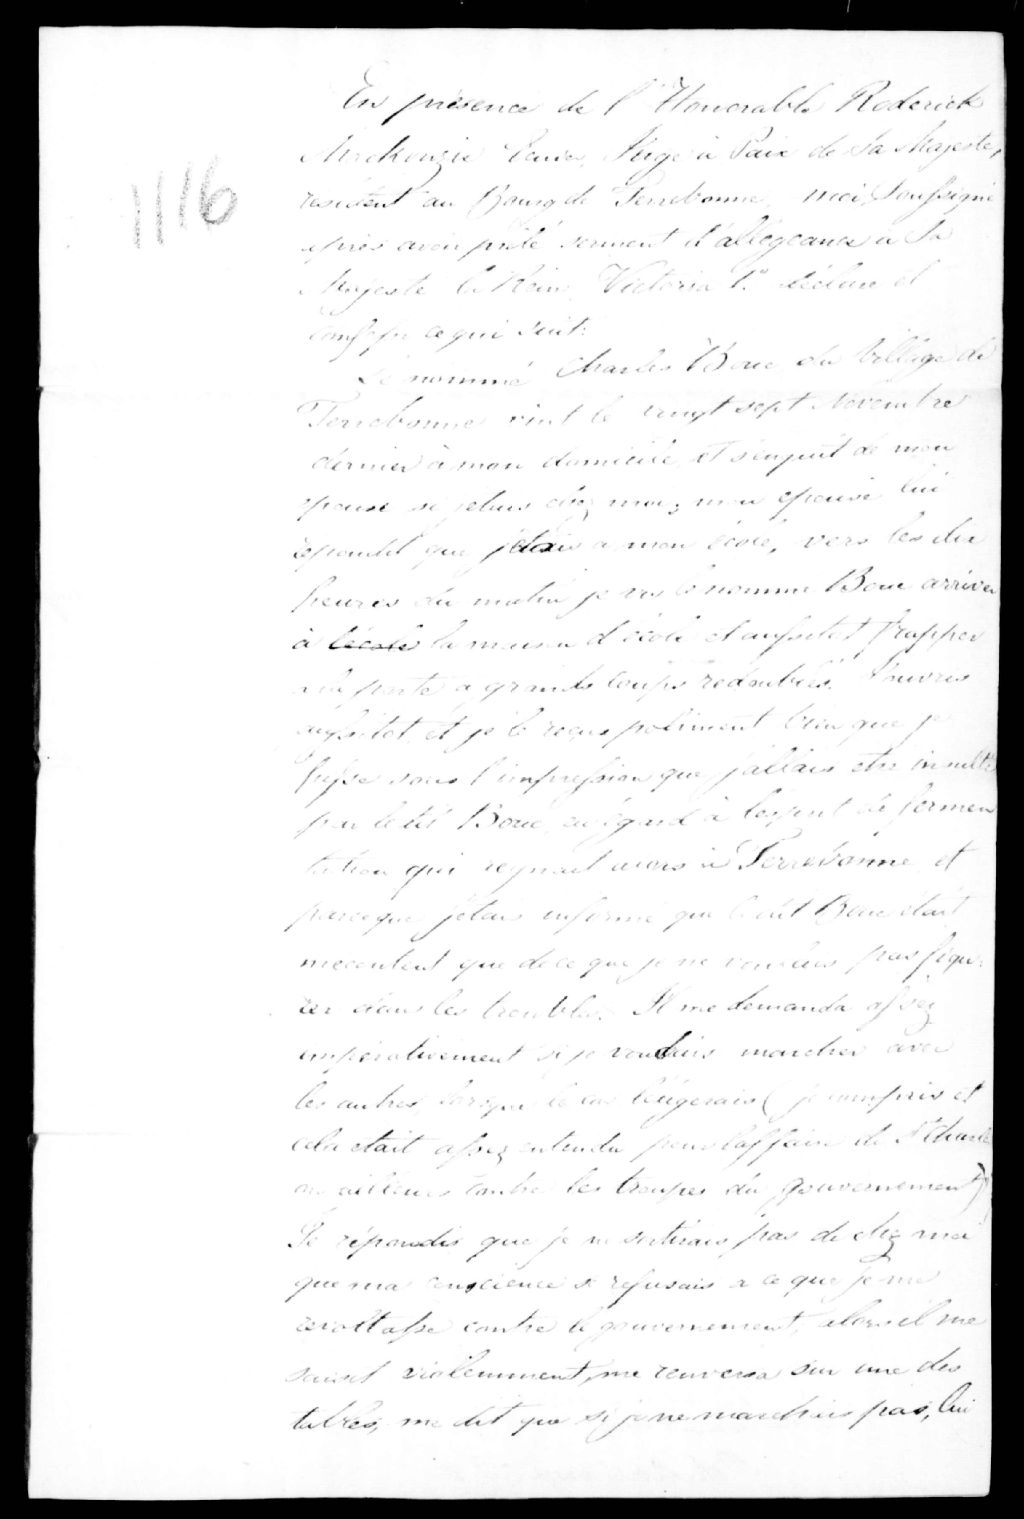 1116
En présence de l'Honorable Roderick
McKenzie Ecuier Juge à Paix de Sa Majesté,
résident au Bourg de Terrebonne, moi, Soussigné
après avoir prêté serment d'allégeance à Sa
Majesté la Reine Victoria 1ère déclare et
confesse ce qui suit:
Le nommé Charles Bouc du Village de
Terrebonne vint le vingt sept Novembre
dernier à mon domicile, et s'enquit de mon
épouse si j'étais chez moi, mon épouse lui
répondit que j'étais à mon école, vers les dix
heures du matin je vis le nommé Bouc arriver
à l'école la maison d'école et aussitot frapper
à la porte a grands coups redoublés. J'ouvris
aussitot et je le reçus poliment bien que je
fusse sous l'impression que j'allais etre insulté
par le dit Bouc, eu égard à l'esprit de fermen
tation qui regnait alors à Terrebonne et
parceque j'étais informé que le dit Bouc était
mecontent que de ce que je ne voulais pas figu-
rer dans les troubles. Il me demanda assez
impérativement si je voulais marcher avec
les autres, lorsque le cas l'éxigerais (je compris et
cela était assez entendu pour l'affaire de St Charles
ou ailleurs contre les troupes du gouvernement)
Je répondis que je ne sortirais pas de chez moi
que ma conscience se refusais a ce que je me
revoltasse contre le gouvernement, alors il me
saisit violemment, me renversa sur une des
tables, me dit que si je ne marchais pas, lui